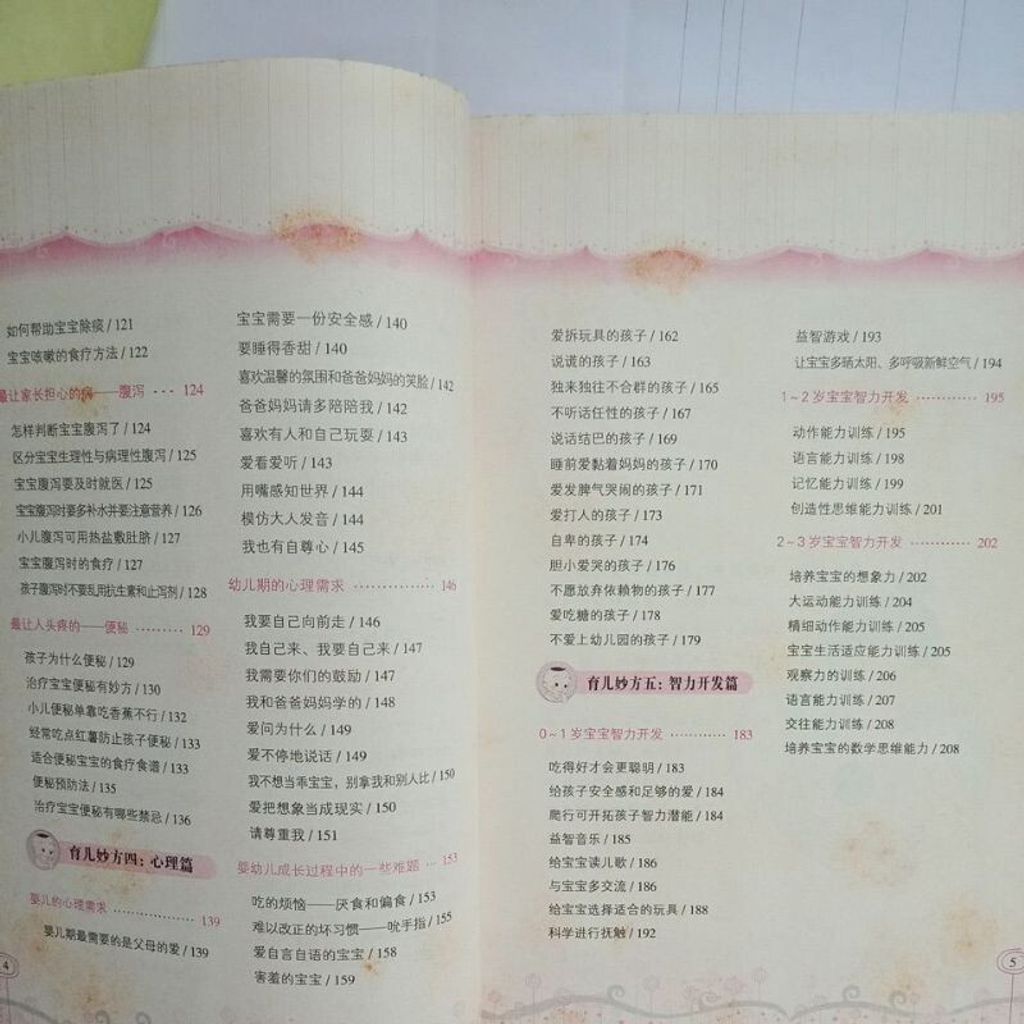 如何帮助宝宝除痰 / 121
宝宝咳嗽的食疗方法 / 122
最让家长担心的病——腹泻 ··· 124
怎样判断宝宝腹泻了 / 124
区分宝宝生理性与病理性腹泻 / 125
宝宝腹泻要及时就医 / 125
宝宝腹泻时要多补水并要注意营养 / 126
小儿腹泻可用热盐敷肚脐 / 127
宝宝腹泻时的食疗 / 127
孩子腹泻时不要乱用抗生素和止泻剂 / 128
最让人头疼的——便秘 ········· 129
孩子为什么便秘 / 129
治疗宝宝便秘有妙方 / 130
小儿便秘单靠吃香蕉不行 / 132
经常吃点红薯防止孩子便秘 / 133
适合便秘宝宝的食疗食谱 / 133
便秘预防法 / 135
治疗宝宝便秘有哪些禁忌 / 136
育儿妙方四：心理篇
婴儿的心理需求 ··············· 139
婴儿期最需要的是父母的爱 / 139
4
宝宝需要一份安全感 / 140
要睡得香甜 / 140
喜欢温馨的氛围和爸爸妈妈的笑脸 / 142
爸爸妈妈请多陪陪我 / 142
喜欢有人和自己玩耍 / 143
爱看爱听 / 143
用嘴感知世界 / 144
模仿大人发音 / 144
我也有自尊心 / 145
幼儿期的心理需求 ·············· 146
我要自己向前走 / 146
我自己来、我要自己来 / 147
我需要你们的鼓励 / 147
我和爸爸妈妈学的 / 148
爱问为什么 / 149
爱不停地说话 / 149
我不想当乖宝宝，别拿我和别人比 / 150
爱把想象当成现实 / 150
请尊重我 / 151
婴幼儿成长过程中的一些难题 ··· 153
吃的烦恼——厌食和偏食 / 153
难以改正的坏习惯——吮手指 / 155
爱自言自语的宝宝 / 158
害羞的宝宝 / 159
爱拆玩具的孩子 / 162
说谎的孩子 / 163
独来独往不合群的孩子 / 165
不听话任性的孩子 / 167
说话结巴的孩子 / 169
睡前爱黏着妈妈的孩子 / 170
爱发脾气哭闹的孩子 / 171
爱打人的孩子 / 173
自卑的孩子 / 174
胆小爱哭的孩子 / 176
不愿放弃依赖物的孩子 / 177
爱吃糖的孩子 / 178
不爱上幼儿园的孩子 / 179
育儿妙方五：智力开发篇
0～1岁宝宝智力开发 ··········· 183
吃得好才会更聪明 / 183
给孩子安全感和足够的爱 / 184
爬行可开拓孩子智力潜能 / 184
益智音乐 / 185
给宝宝读儿歌 / 186
与宝宝多交流 / 186
给宝宝选择适合的玩具 / 188
科学进行抚触 / 192
益智游戏 / 193
让宝宝多晒太阳、多呼吸新鲜空气 / 194
1～2岁宝宝智力开发 ············ 195
动作能力训练 / 195
语言能力训练 / 198
记忆能力训练 / 199
创造性思维能力训练 / 201
2～3岁宝宝智力开发 ············ 202
培养宝宝的想象力 / 202
大运动能力训练 / 204
精细动作能力训练 / 205
宝宝生活适应能力训练 / 205
观察力的训练 / 206
语言能力训练 / 207
交往能力训练 / 208
培养宝宝的数学思维能力 / 208
5